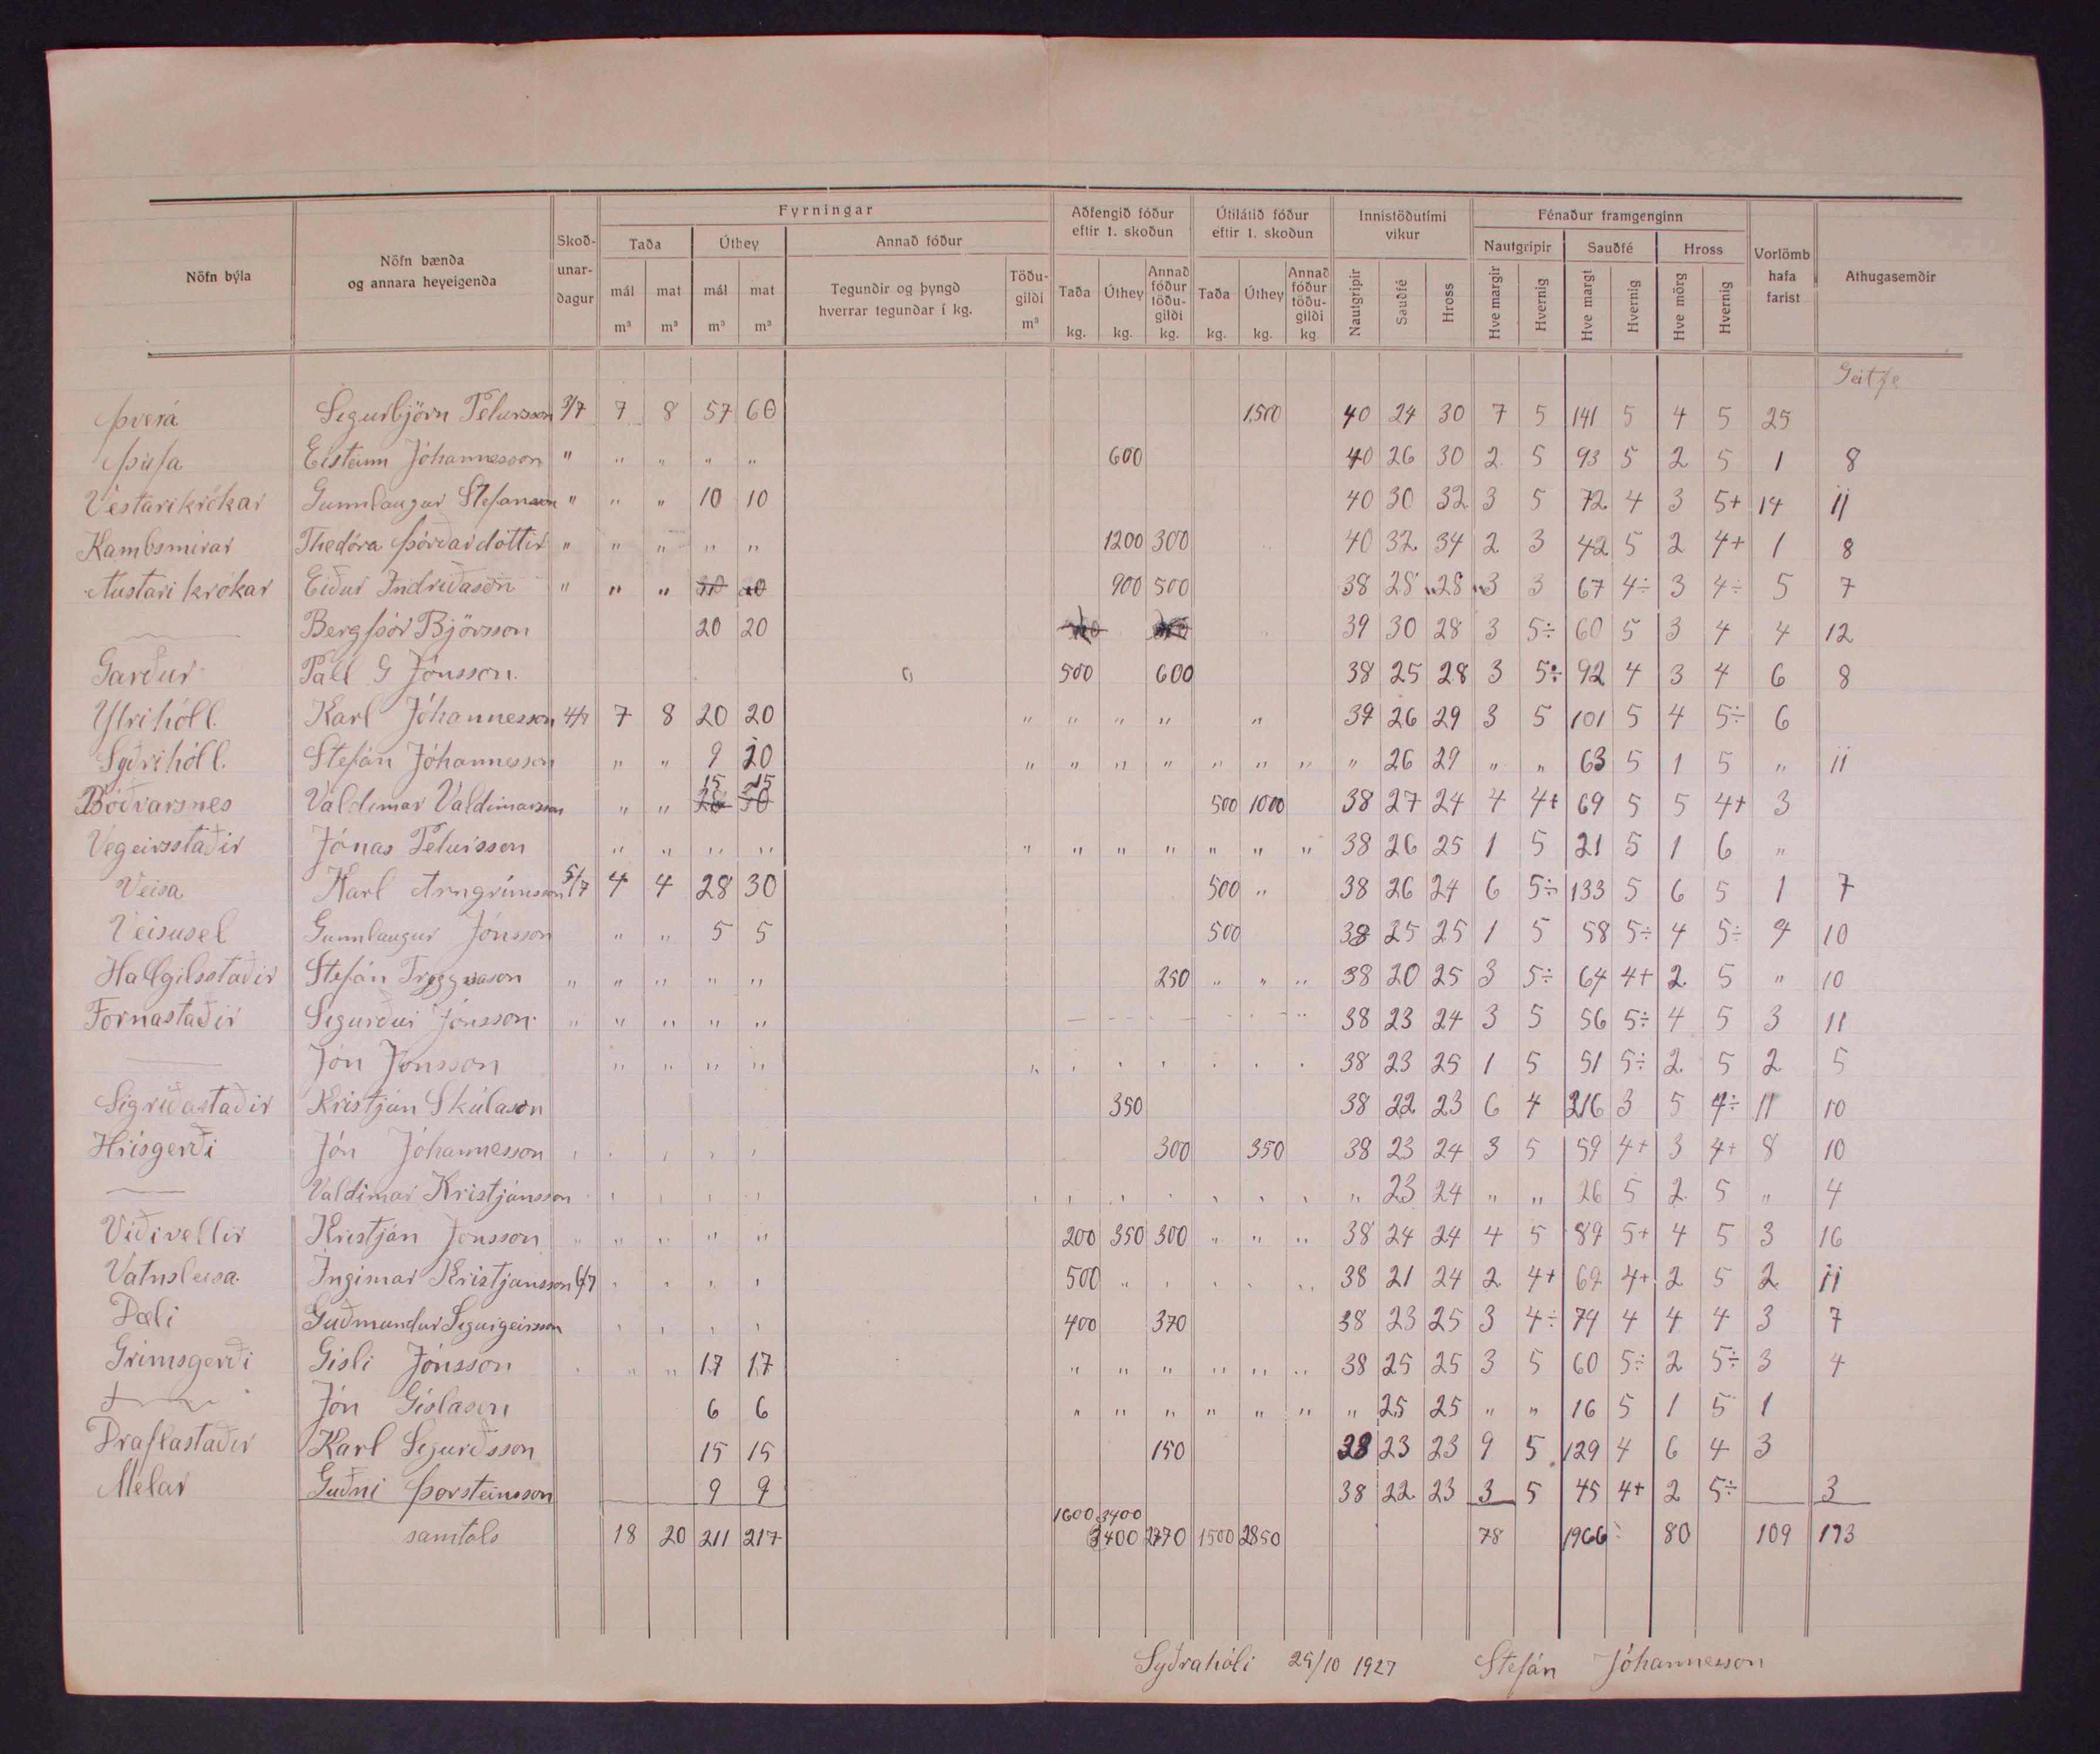 Nöfn býla | Nöfn bænda og annara heyeigenda | Skoð-unar-dagur | Fyrningar | Aðfengið fóður eftir 1. skoðun | Útilátið fóður eftir 1. skoðun | Innistöðutími vikur | Fénaður framgenginn | Vorlömb hafa farist | Athugasemdir
Taða | Úthey | Annað fóður | Nautgripir | Sauðfé | Hross
mál m³ | mat m³ | mál m³ | mat m³ | Tegundir og þyngd hverrar tegundar í kg. | Töðu-gildi m³ | Taða kg. | Úthey kg. | Annað fóður töðu-gildi kg. | Taða kg. | Úthey kg. | Annað fóður töðu-gildi kg. | Nautgripir | Sauðfé | Hross | Hve margir | Hvernig | Hve margt | Hvernig | Hve mörg | Hvernig
Geitfe
Þverá Sigurbjörn Petursson 3/7 7 8 57 60 1,500 40 24 30 7 5 141 5 4 5 25
Þúfa Eisteinn Jóhannesson " " " " " 600 40 26 30 2 5 93 5 2 5 1 8
Vestarikrókar Gunnlaugur Stefansson " " " 10 10 40 30 32 3 5 72 4 3 5+ 14 11
Kambsmirar Thedóra Þórðardóttir " " " " " 1200 300 40 32 34 2 3 42 5 2 4+ 1 8
Austari krókar Eiður Indriðason " " " 900 500 38 28 28 3 3 67 4÷ 3 4÷ 5 7
Bergþór Björsson 20 20 39 30 28 3 5÷ 60 5 3 4 4 12
Garður Páll G Jónsson 500 600 38 25 28 3 5÷ 92 4 3 4 6 8
Ytrihóll. Karl Jóhannesson 4/7 7 8 20 20 " " " " " 39 26 29 3 5 101 5 4 5÷ 6
Syðrihóll. Stefán Jóhannesson " " 9 20 " " " " " " " " 26 29 " " 63 5 1 5 " 11
Böðvarsnes Valdimar Valdimarsson " " 15 15 500 1000 38 27 24 4 4+ 69 5 5 4+ 3
Vegeirsstaðir Jónas Petursson " " " " " " " " " " " 38 26 25 1 5 21 5 1 6 "
Veisa Karl Arngrímsson 5/7 4 4 28 30 500 " 38 26 24 6 5÷ 133 5 6 5 1 7
Veisusel Gunnlaugur Jónsson " " 5 5 500 38 25 25 1 5 58 5÷ 4 5÷ 9 10
Hallgilsstaðir Stefán Tryggvason " " " " " 250 " " " 38 20 25 3 5÷ 64 4+ 2 5 " 10
Fornastaðir Sigurður Jónsson " " " " " 38 23 24 3 5 56 5÷ 4 5 3 11
Jón Jónsson " " " " " 38 23 25 1 5 51 5÷ 2 5 2 5
Sigríðastaðir Kristján Skúlason 350 38 22 23 6 4 216 3 5 4÷ 11 10
Hrísgerði Jón Jóhannesson 300 350 38 23 24 3 5 59 4+ 3 4+ 8 10
Valdimar Kristjánsson " 23 24 " " 26 5 2 5 " 4
Viðivellir Kristján Jónsson " " " " " 200 350 300 " " " 38 24 24 4 5 89 5+ 4 5 3 16
Vatnsleisa. Ingimar Kristjansson 6/7 500 " 38 21 24 2 4+ 69 4+ 2 5 2 11
Dæli Guðmundur Sigurgeirsson 400 370 38 23 25 3 4÷ 79 4 4 4 3 7
Grimsgerði Gisli Jónsson " " 17 17 " " " " " " 38 25 25 3 5 60 5÷ 2 5÷ 3 4
Jón Gíslason 6 6 " " " " " " " 25 25 " " 16 5 1 5 1
Draflastaðir Karl Sigurðsson 15 15 150 38 23 23 9 5 129 4 6 4 3
Melar Guðni Þorsteinsson 9 9 38 22 23 3 5 45 4+ 2 5÷ 3
1600 3400
samtals 18 20 211 217 3400 2770 1500 2850 78 1966 80 109 173
Syðrahóli 29/10 1927 Stefán Jóhannesson